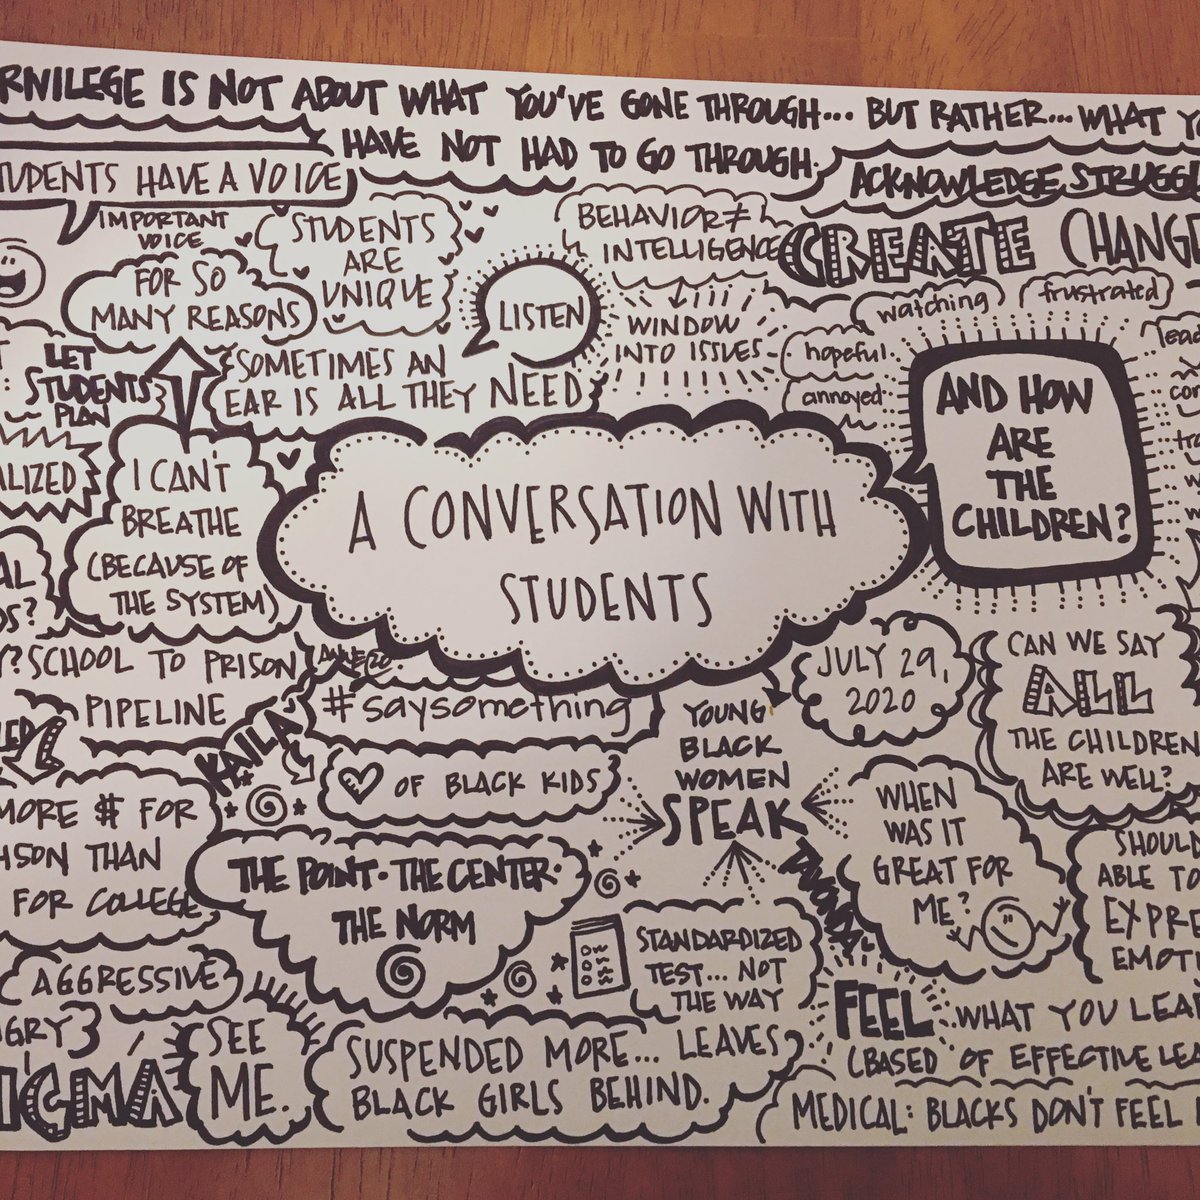 PRIVILEGE IS NOT ABOUT WHAT YOU'VE GONE THROUGH... BUT RATHER... WHAT
HAVE NOT HAD TO GO THROUGH.
STUDENTS HAVE A VOICE
IMPORTANT
VOICE
FOR SO
MANY REASONS
STUDENTS
ARE
UNIQUE
LISTEN
BEHAVIOR ≠
INTELLIGENCE
WINDOW
INTO ISSUES
ACKNOWLEDGE STRUGGLE
CREATE CHANGE
watching
frustrated
hopeful
annoyed
LET
STUDENTS
PLAN
SOMETIMES AN
EAR IS ALL THEY NEED
AND HOW
ARE
THE
CHILDREN?
I CAN'T
BREATHE
(BECAUSE OF
THE SYSTEM)
A CONVERSATION WITH
STUDENTS
SCHOOL TO PRISON
PIPELINE
#saysomething
KAILA
♡ OF BLACK KIDS
YOUNG
BLACK
WOMEN
SPEAK
JULY 29,
2020
CAN WE SAY
ALL
THE CHILDREN
ARE WELL?
MORE $ FOR
THAN
FOR COLLEGE
THE POINT · THE CENTER ·
THE NORM
WHEN
WAS IT
GREAT FOR
ME?
SHOULD
ABLE TO
EXPRE
EMOTI
STANDARDIZED
TEST... NOT
THE WAY
AGGRESSIVE
SEE
ME.
SUSPENDED MORE... LEAVES
BLACK GIRLS BEHIND.
FEEL WHAT YOU
(BASED OF EFFECTIVE
MEDICAL: BLACKS DON'T FEEL